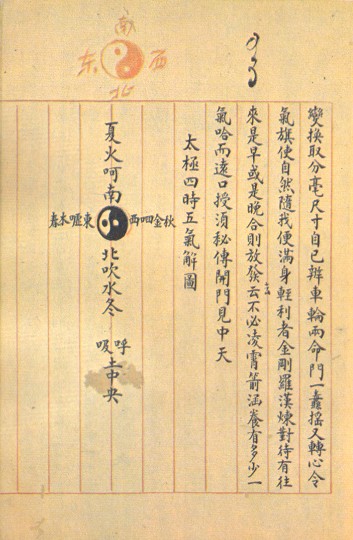 南
东 西
北
變換取分毫尺寸自己辦車輪兩命門一纛搖又轉心令
氣旗使自然隨我便滿身輕利者金剛羅漢煉對待有往
來是早或是晚合則放發云不必凌霄箭涵養有多少一
氣哈而遠口授須秘傳開門見中天
太極四時五氣解圖
夏火呵南
秋金呬西
東噓木春
北吹水冬
呼吸
土中央